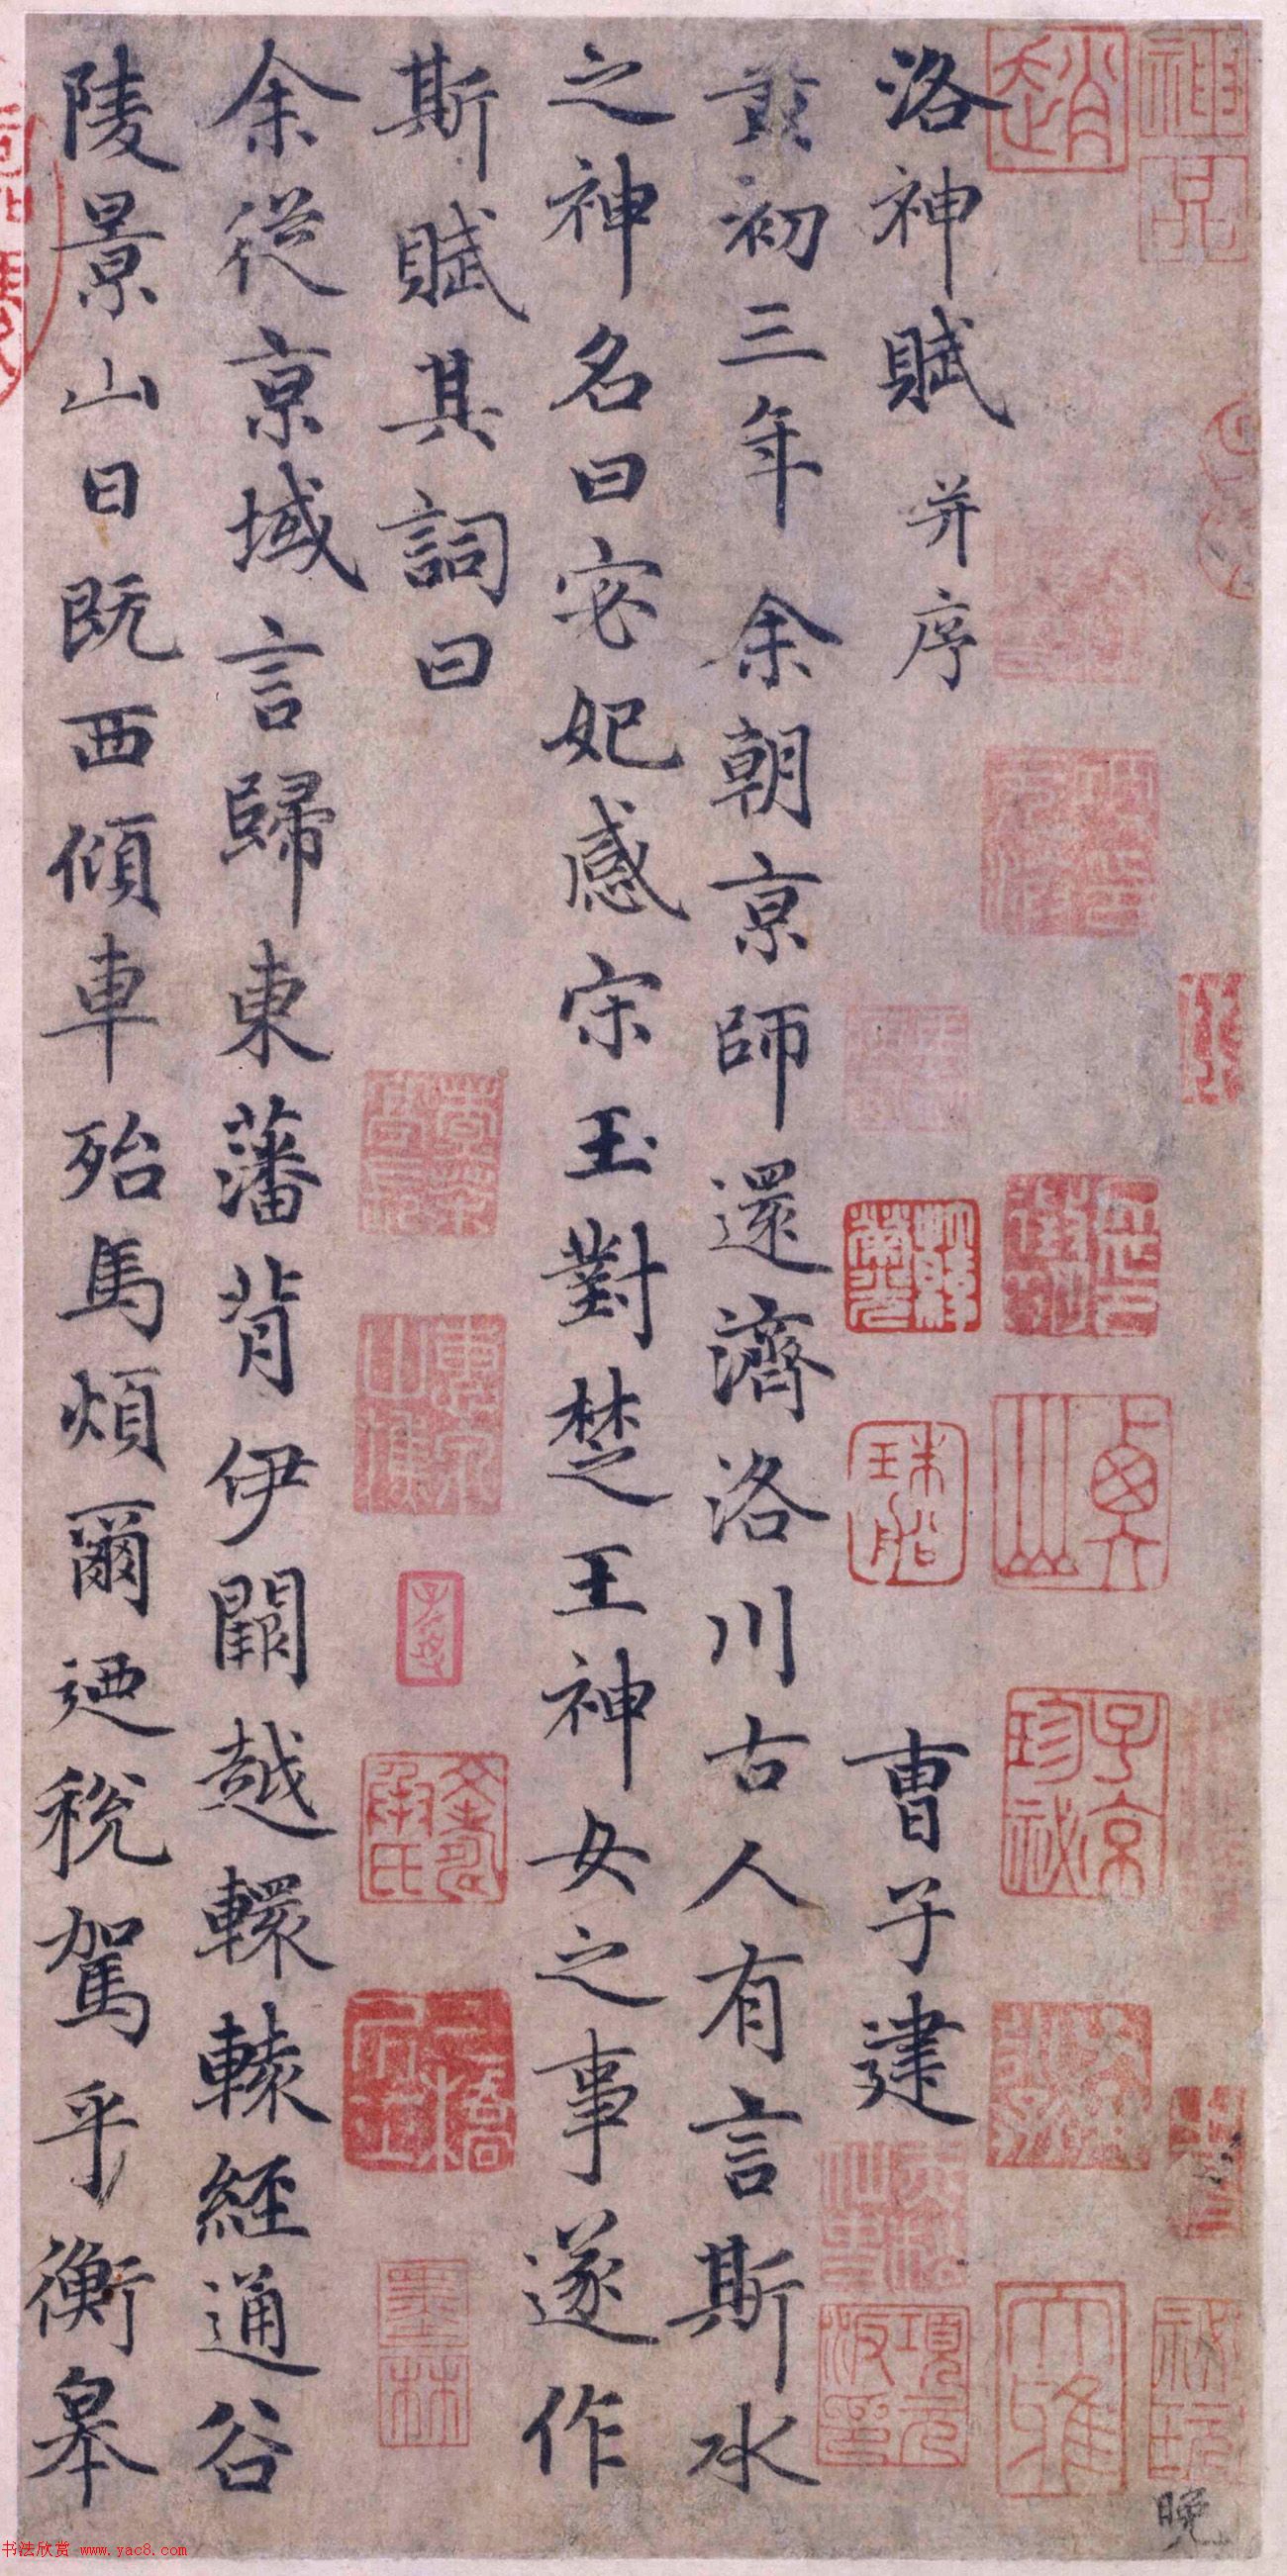 洛神賦 并序 曹子建
黃初三年余朝京師還濟洛川古人有言斯水
之神名曰宓妃感宋玉對楚王神女之事遂作
斯賦其詞曰
余從京域言歸東藩背伊闕越轘轅經通谷
陵景山日既西傾車殆馬煩爾迺稅駕乎衡皋
趙
大雅
子京珍祕
項元汴印
墨林
珠船
晚
书法欣赏 www.yac8.com